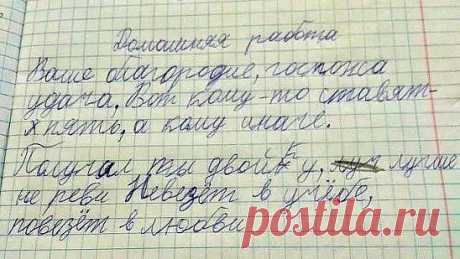 Домашняя работа
Ваше благородие, госпожа
удача. Вот кому-то ставят-
х пять, а кому иначе.
Получал ты двойку, луч лучше
не реви Невезёт в учёбе,
повезёт в любви
postila.ru